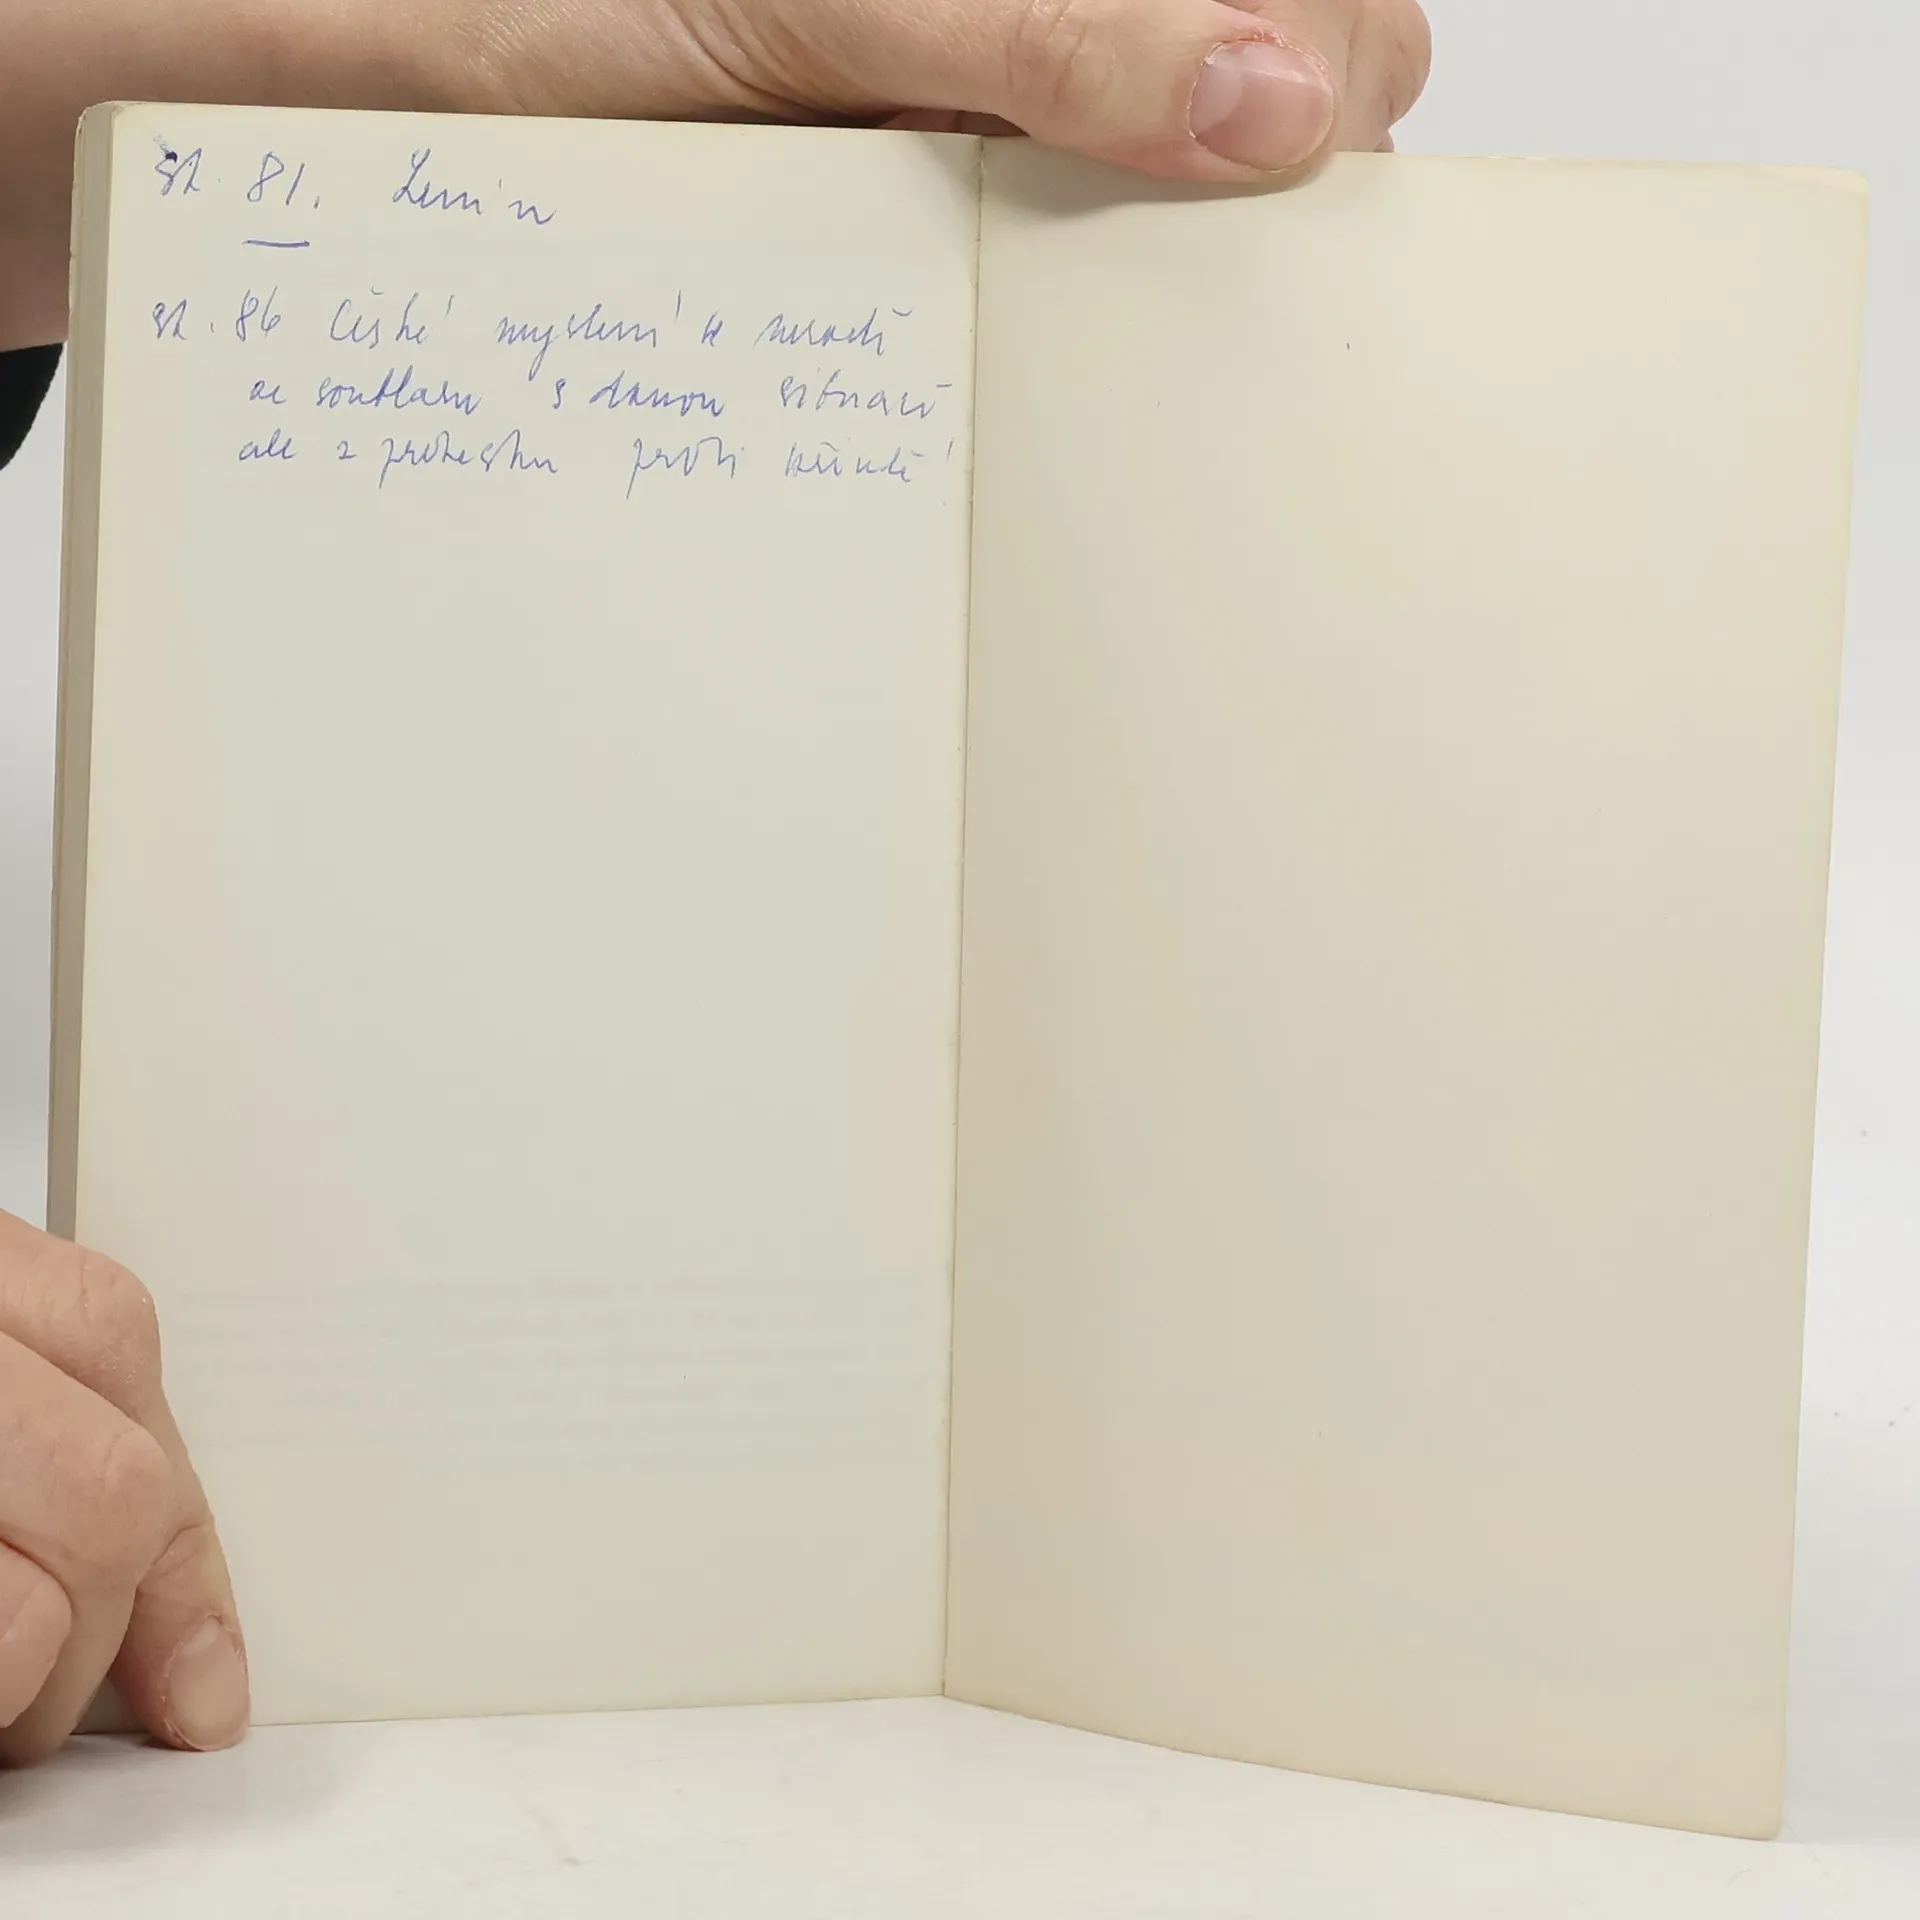 st. 81. Lenin
st. 86 České myšlení se nerodí
ze souhlasu s danou situací
ale z protestu proti křivdě!